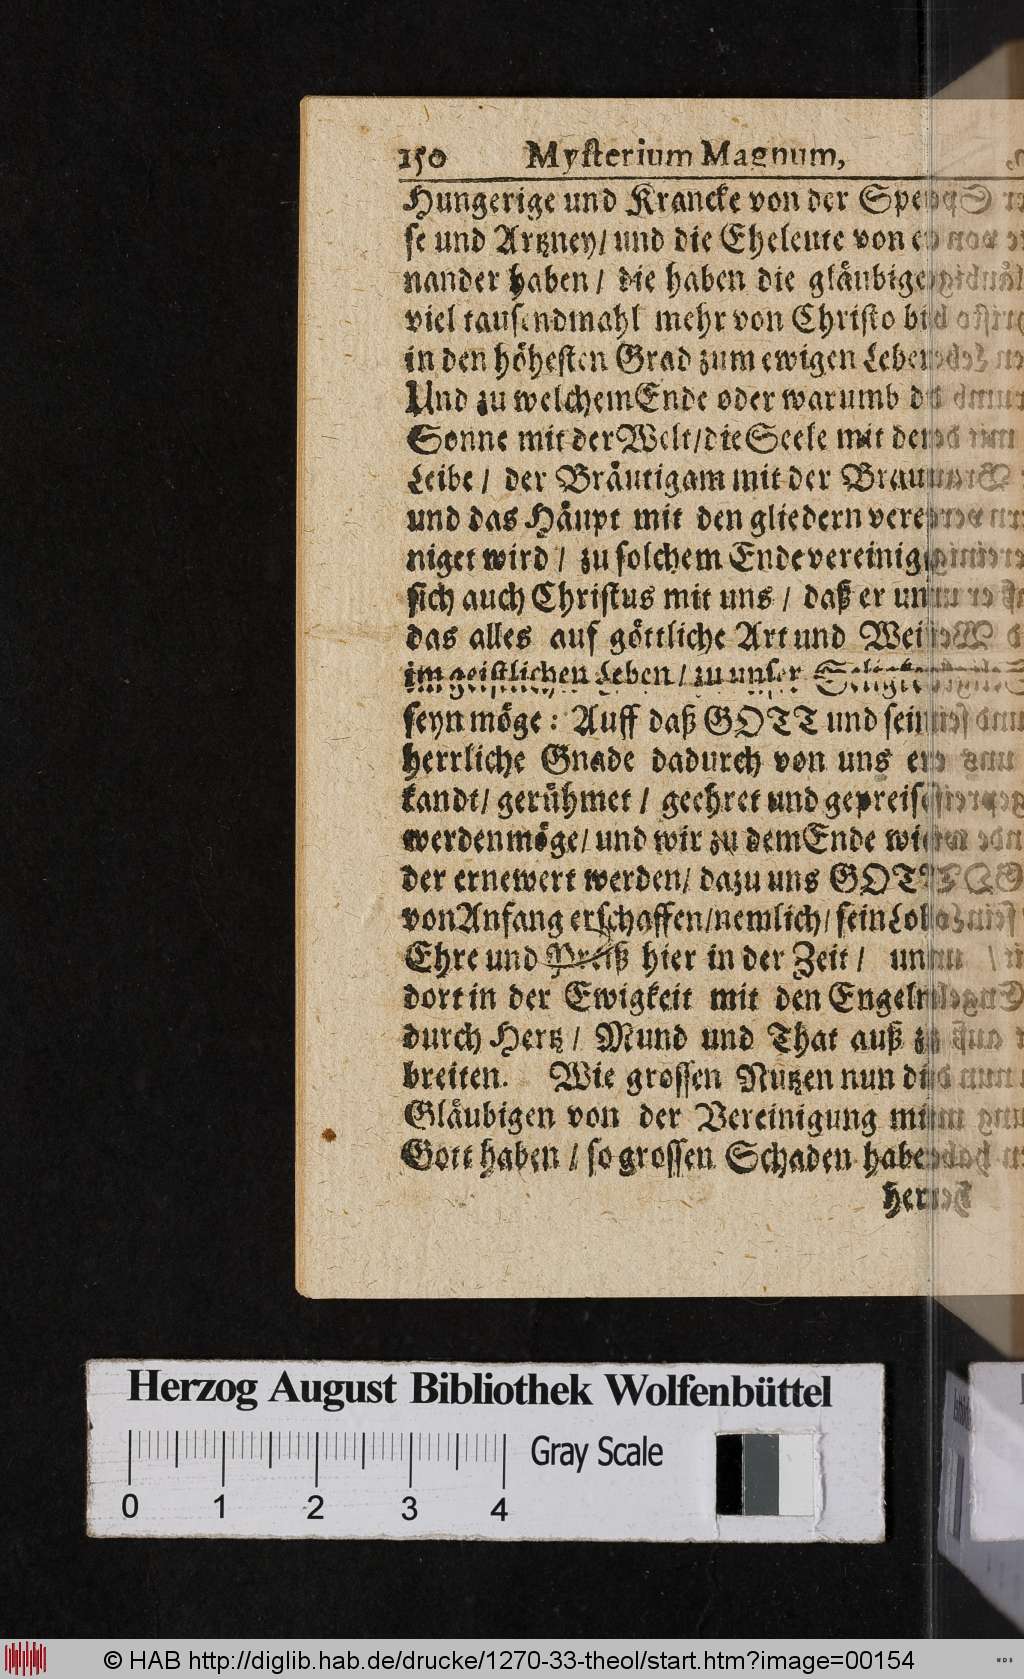 150 Mysterium Magnum,
Hungerige und Krancke von der Spei
se und Artzney/ und die Eheleute von ei
nander haben / die haben die gläubige
viel tausendmahl mehr von Christo biß
in den höhesten Grad zum ewigen Leben
Und zu welchem Ende oder warumb die
Sonne mit der Welt/die Seele mit dem
Leibe / der Bräutigam mit der Braut
und das Häupt mit den gliedern verei
niget wird / zu solchem Ende vereinig
sich auch Christus mit uns / daß er uns
das alles auf göttliche Art und Weise
im geistlichen Leben / zu unser Seligkeit
seyn möge: Auff daß GOTT und seine
herrliche Gnade dadurch von uns er
kandt/ gerühmet / geehret und gepreiset
werden möge/ und wir zu dem Ende wie
der ernewert werden/ dazu uns GOTT
von Anfang erschaffen/nemlich/ sein Lob
Ehre und Preiß hier in der Zeit / und
dort in der Ewigkeit mit den Engeln
durch Hertz / Mund und That auß zu
breiten. Wie grossen Nutzen nun die
Gläubigen von der Vereinigung mit
Gott haben / so grossen Schaden haben
Herzog August Bibliothek Wolfenbüttel
Gray Scale
0 1 2 3 4
© HAB http://diglib.hab.de/drucke/1270-33-theol/start.htm?image=00154